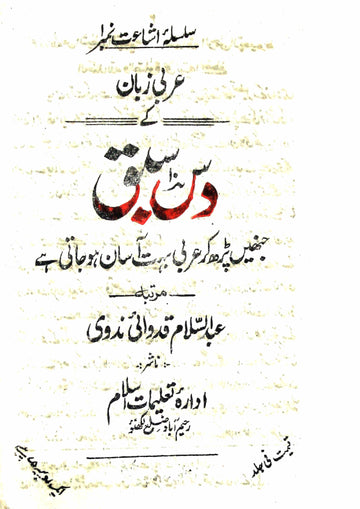 سلسلۂ اشاعت نمبر۱
عربی زبان
کے
دس سبق
جنھیں پڑھ کر عربی بہت آسان ہو جاتی ہے
مرتبہ
عبدالسّلام قدوائی ندوی
ناشر:
ادارۂ تعلیمات اسلام
رحیم آباد ضلع لکھنؤ
قیمت فی جلد
ایک روپیہ